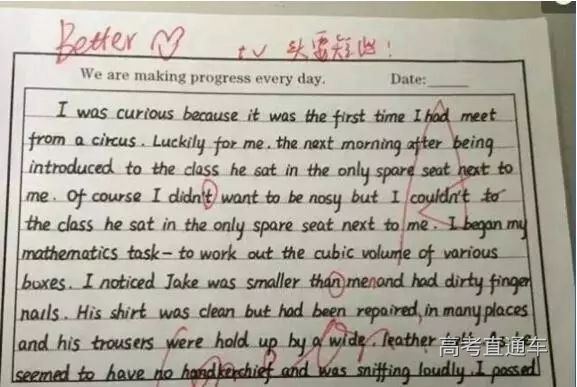 Better
tv 头要短些！
We are making progress every day. Date:
I was curious because it was the first time I had meet
from a circus. Luckily for me. the next morning after being
introduced to the class he sat in the only spare seat next to
me. Of course I didn't want to be nosy but I couldn't to
the class he sat in the only spare seat next to me. I began my
mathematics task- to work out the cubic volume of various
boxes. I noticed Jake was smaller than men and had dirty finger
nails. His shirt was clean but had been repaired, in many places
and his trousers were hold up by a wide. leather
seemed to have no handkerchief and was sniffing loudly. I passed
高考直通车